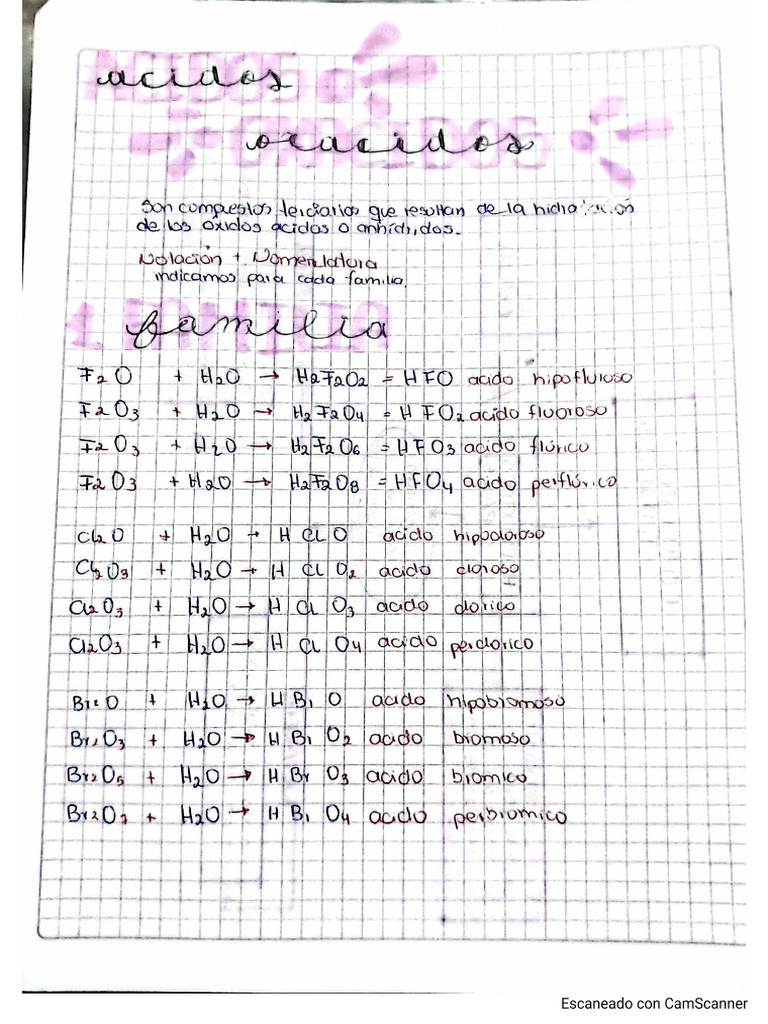 acidos
oxacidos
Son compuestos terciarios que resultan de la hidratación
de los oxidos acidos o anhídridos.
Notación + Nomenclatura
indicamos para cada familia.
1. familia
F2O + H2O → H2F2O2 = HFO acido hipofluroso
F2O3 + H2O → H2F2O4 = HFO2 acido fluoroso
F2O3 + H2O → H2F2O6 = HFO3 acido flúrico
F2O3 + H2O → H2F2O8 = HFO4 acido perflúrico
Cl2O + H2O → HClO acido hipocloroso
Cl2O3 + H2O → HClO2 acido cloroso
Cl2O3 + H2O → HClO3 acido clorico
Cl2O3 + H2O → HClO4 acido perclorico
Br2O + H2O → HBrO acido hipobromoso
Br2O3 + H2O → HBrO2 acido bromoso
Br2O5 + H2O → HBrO3 acido bromico
Br2O7 + H2O → HBrO4 acido perbromico
Escaneado con CamScanner